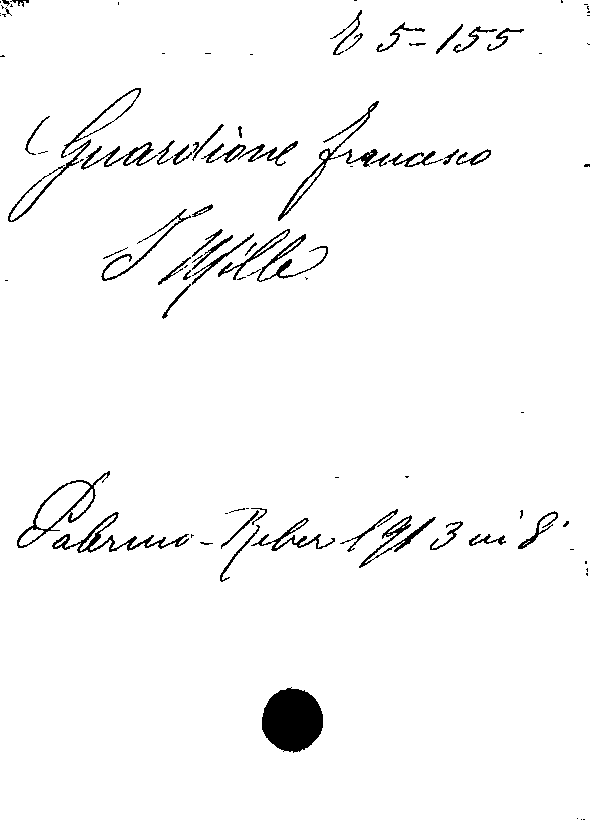 E 5-155
Guardione Francesco
I Mille
Palermo - Reber 1913 in 8°